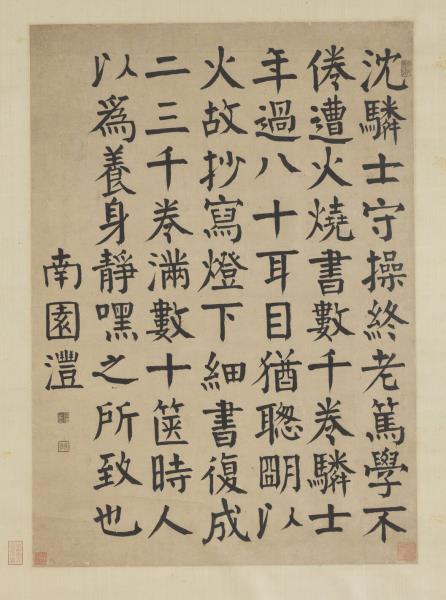 沈驎士守操終老篤學不
倦遭火燒書數千卷驎士
年過八十耳目猶聦朙以
火故抄寫燈下細書復成
二三千卷滿數十篋時人
以為養身靜嘿之所致也
南園灃